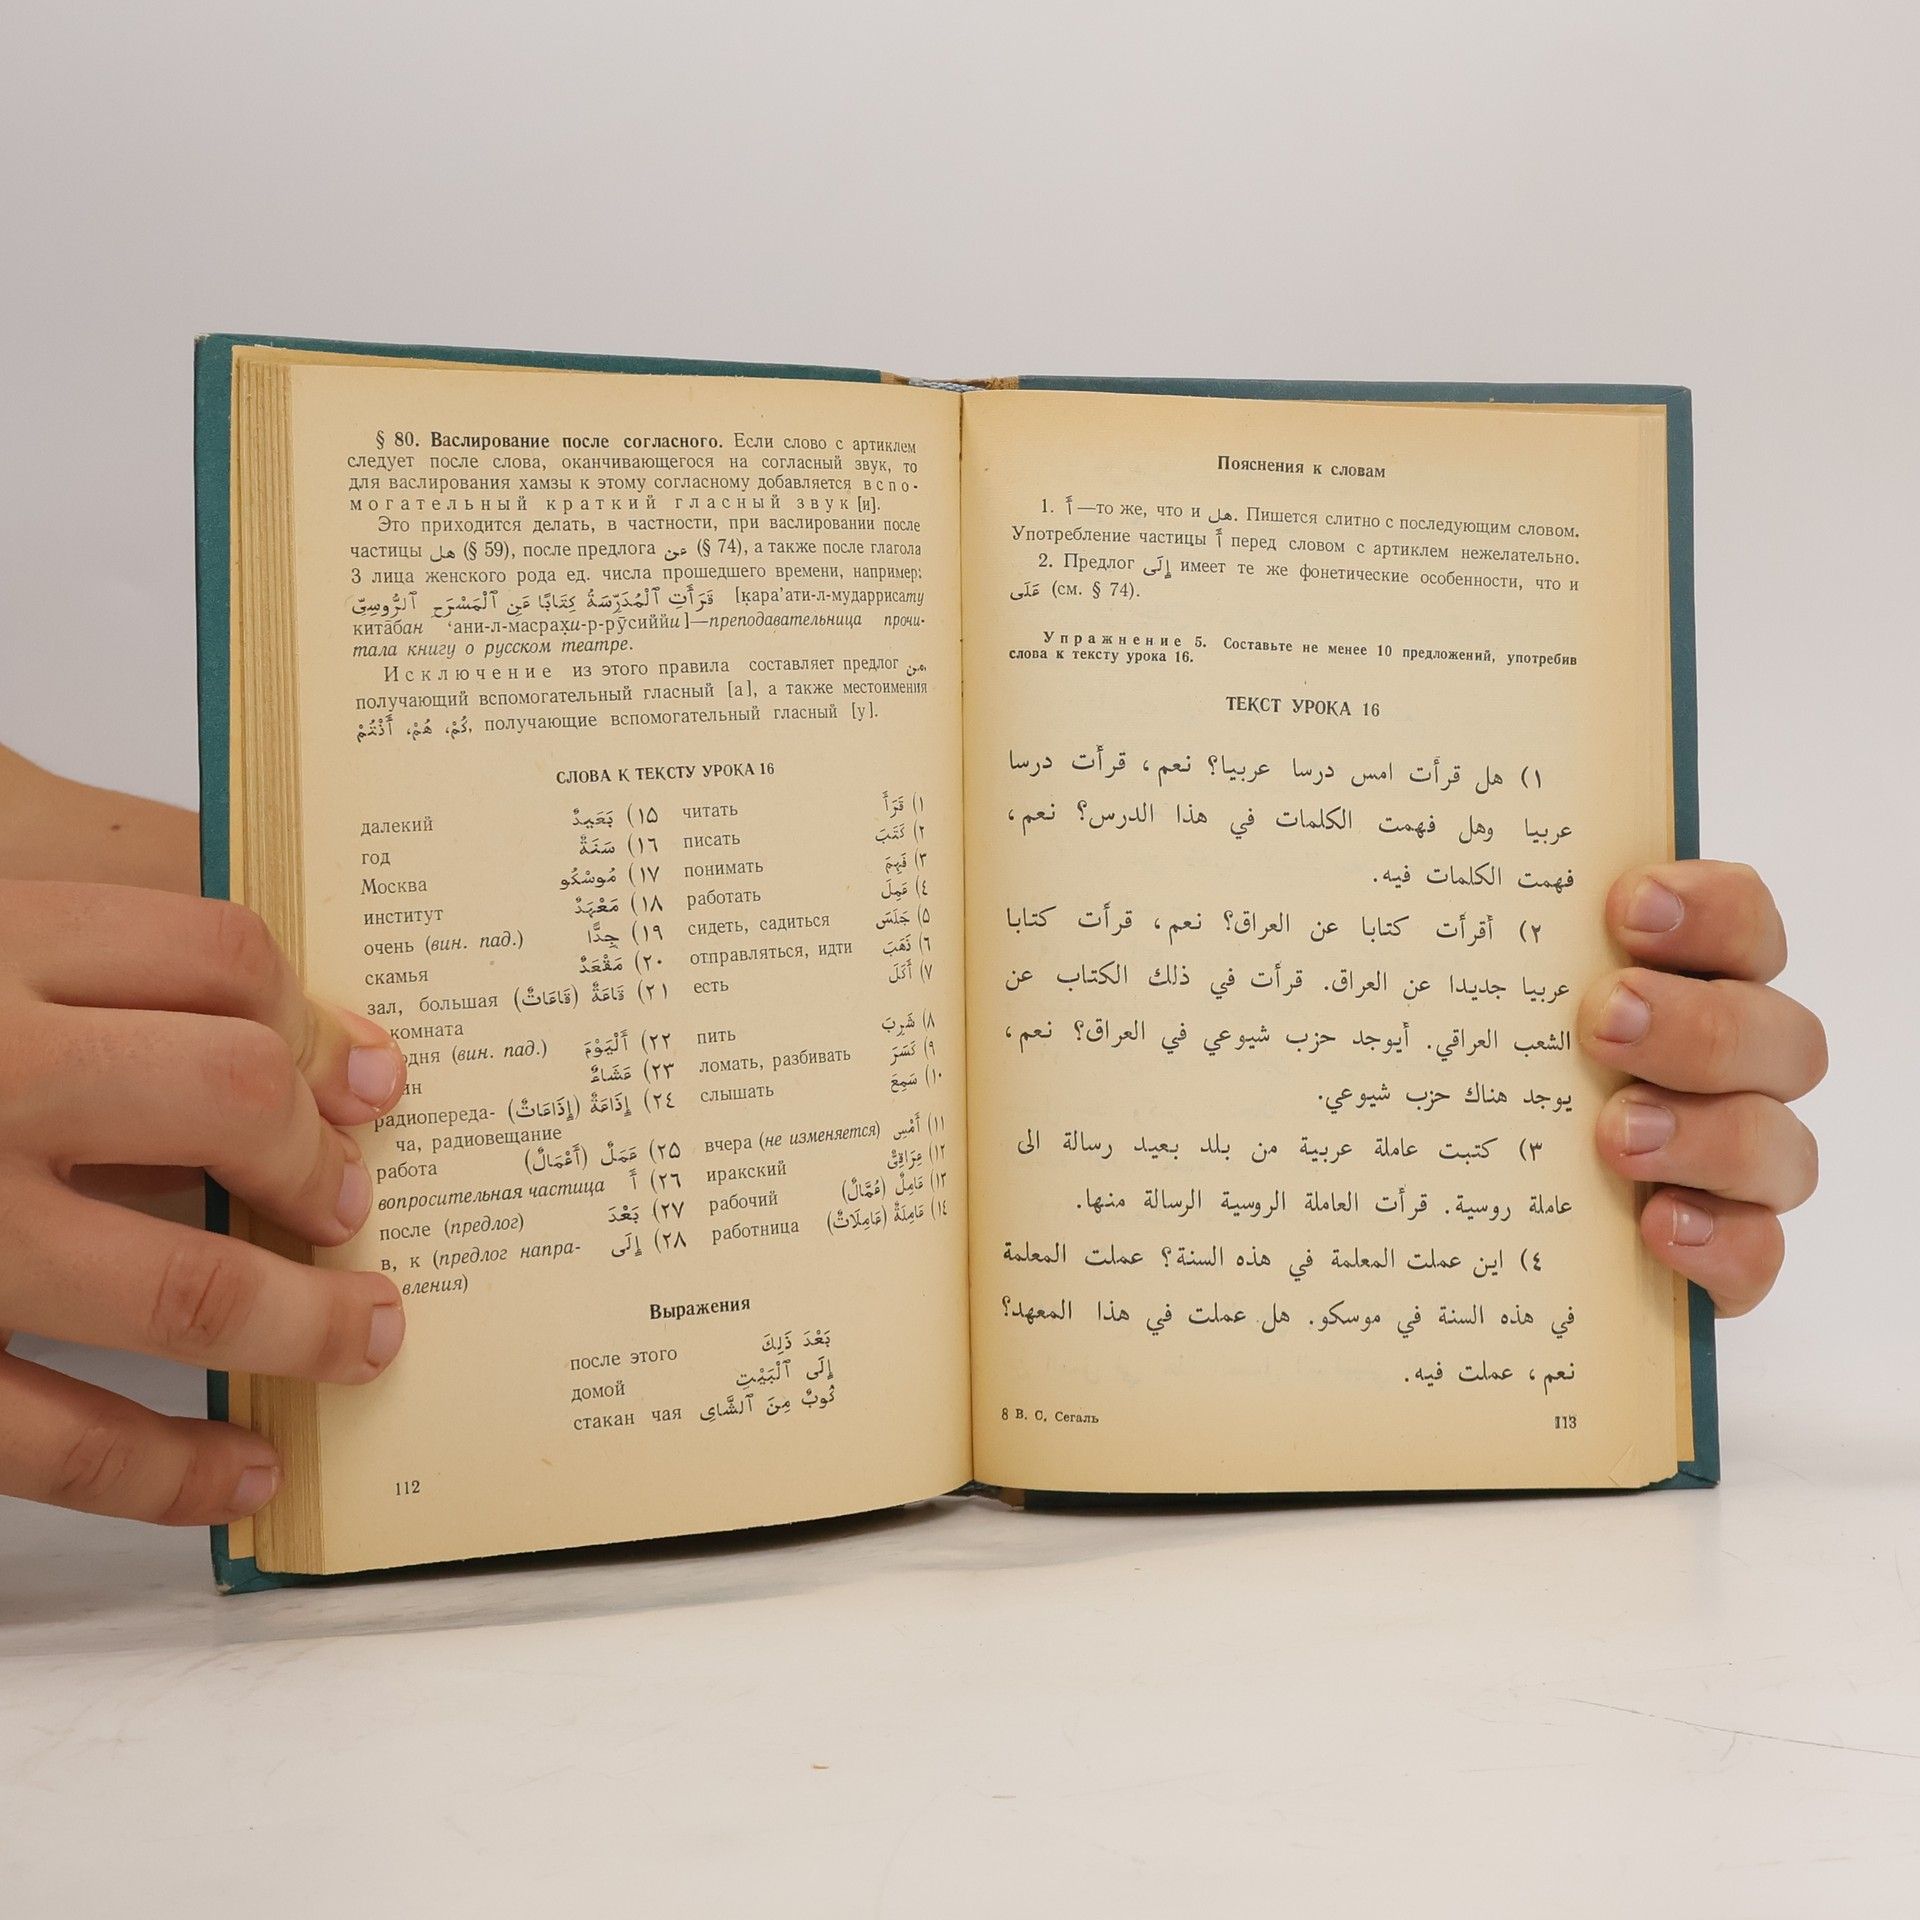 § 80. Васлирование после согласного. Если слово с артиклем
следует после слова, оканчивающегося на согласный звук, то
для васлирования хамзы к этому согласному добавляется вспо-
могательный краткий гласный звук [и].
Это приходится делать, в частности, при васлировании после
частицы هل (§ 59), после предлога عن (§ 74), а также после глагола
3 лица женского рода ед. числа прошедшего времени, например:
قَرَأَتِ ٱلْمُدَرِّسَةُ كِتَابًا عَنِ ٱلْمَسْرَحِ ٱلرُّوسِيِّ [қара’ати-л-мударрисату
китāбан ‘ани-л-масрах̣и-р-рӯсиййи]—преподавательница прочи-
тала книгу о русском театре.
Исключение из этого правила составляет предлог من,
получающий вспомогательный гласный [а], а также местоимения
كُمْ، هُمْ، أَنْتُمْ, получающие вспомогательный гласный [у].
СЛОВА К ТЕКСТУ УРОКА 16
١) قَرَأَ читать
٢) كَتَبَ писать
٣) فَهِمَ понимать
٤) عَمِلَ работать
٥) جَلَسَ сидеть, садиться
٦) ذَهَبَ отправляться, идти
٧) أَكَلَ есть
٨) شَرِبَ пить
٩) كَسَرَ ломать, разбивать
١٠) سَمِعَ слышать
١١) أَمْسِ вчера (не изменяется)
١٢) عِرَاقِيٌّ иракский
١٣) عَامِلٌ (عُمَّالٌ) рабочий
١٤) عَامِلَةٌ (عَامِلَاتٌ) работница
١٥) بَعِيدٌ далекий
١٦) سَنَةٌ год
١٧) مُوسْكُو Москва
١٨) مَعْهَدٌ институт
١٩) جِدًّا очень (вин. пад.)
٢٠) مَقْعَدٌ скамья
٢١) قَاعَةٌ (قَاعَاتٌ) зал, большая
комната
٢٢) أَلْيَوْمَ (вин. пад.)
٢٣) عَشَاءٌ
٢٤) إِذَاعَةٌ (إِذَاعَاتٌ) радиопереда-
ча, радиовещание
٢٥) عَمَلٌ (أَعْمَالٌ) работа
٢٦) أَ вопросительная частица
٢٧) بَعْدَ после (предлог)
٢٨) إِلَى в, к (предлог напра-
вления)
Выражения
после этого بَعْدَ ذَلِكَ
домой إِلَى ٱلْبَيْتِ
стакан чая كُوبٌ مِنَ ٱلشَّاىِ
112
Пояснения к словам
1. أَ—то же, что и هل. Пишется слитно с последующим словом.
Употребление частицы أَ перед словом с артиклем нежелательно.
2. Предлог إِلَى имеет те же фонетические особенности, что и
عَلَى (см. § 74).
Упражнение 5. Составьте не менее 10 предложений, употребив
слова к тексту урока 16.
ТЕКСТ УРОКА 16
١) هل قرأت امس درسا عربيا؟ نعم، قرأت درسا
عربيا وهل فهمت الكلمات في هذا الدرس؟ نعم،
فهمت الكلمات فيه.
٢) أقرأت كتابا عن العراق؟ نعم، قرأت كتابا
عربيا جديدا عن العراق. قرأت في ذلك الكتاب عن
الشعب العراقي. أيوجد حزب شيوعي في العراق؟ نعم،
يوجد هناك حزب شيوعي.
٣) كتبت عاملة عربية من بلد بعيد رسالة الى
عاملة روسية. قرأت العاملة الروسية الرسالة منها.
٤) اين عملت المعلمة في هذه السنة؟ عملت المعلمة
في هذه السنة في موسكو. هل عملت في هذا المعهد؟
نعم، عملت فيه.
8 В. С. Сегаль
113